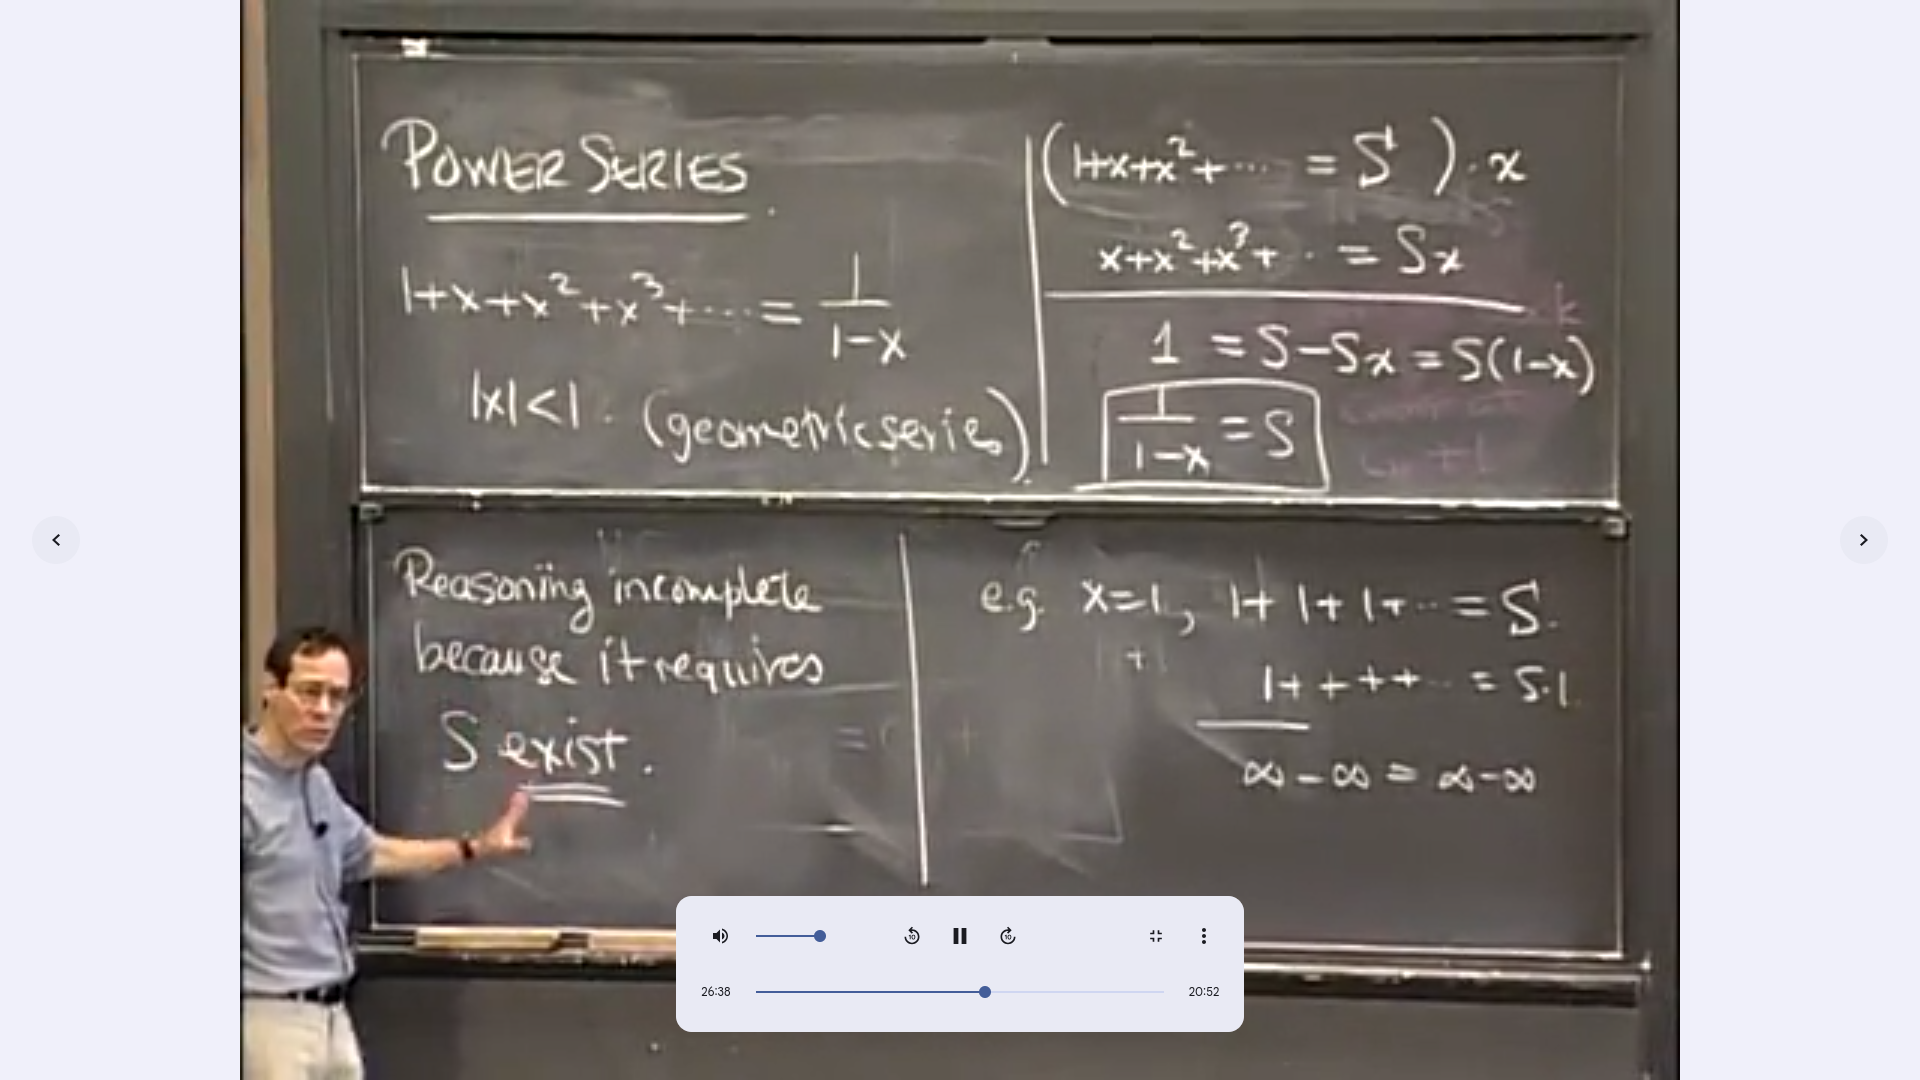 POWER SERIES
1+x+x²+x³+⋯ = 1/(1-x)
|x|<1. (geometric series).
(1+x+x²+⋯ = S)·x
x+x²+x³+⋯ = Sx
1 = S-Sx = S(1-x)
1/(1-x) = S
Reasoning incomplete
because it requires
S exist.
e.g. x=1, 1+1+1+⋯ = S.
1+ + + +⋯ = S·1.
∞-∞ = ∞-∞
10
10
26:38
20:52